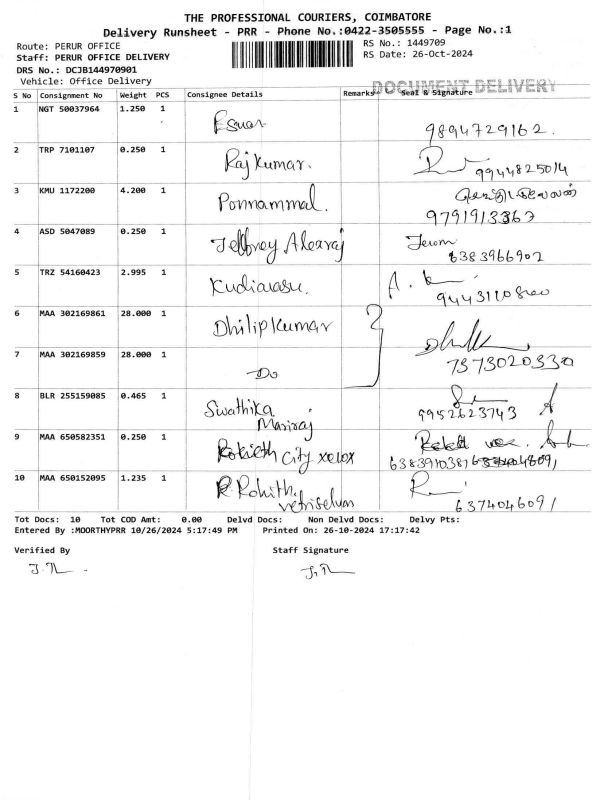 THE PROFESSIONAL COURIERS, COIMBATORE
Delivery Runsheet - PRR - Phone No.:0422-3505555 - Page No.:1
Route: PERUR OFFICE RS No.: 1449709
Staff: PERUR OFFICE DELIVERY RS Date: 26-Oct-2024
DRS No.: DCJB144970901
Vehicle: Office Delivery DOCUMENT DELIVERY
S No Consignment No Weight PCS Consignee Details Remarks Seal & Signature
1 NGT 50037964 1.250 1 Eswar 9894729162.
2 TRP 7101107 0.250 1 Rajkumar. 9944825014
3 KMU 1172200 4.200 1 Ponnammal.
9791913367
4 ASD 5047089 0.250 1 Jeffrey
6383966902
5 TRZ 54160423 2.995 1 Kudiarasu. A.
6 MAA 302169861 28.000 1 Dhilip Kumar
7 MAA 302169859 28.000 1 Do 7373020330
8 BLR 255159085 0.465 1 Swathika 9952623743
Mariraj
9 MAA 650582351 0.250 1 City xerox
6383910381
10 MAA 650152095 1.235 1 R. Rohith.
Vetriselvan 6374046091
Tot Docs: 10 Tot COD Amt: 0.00 Delvd Docs: Non Delvd Docs: Delvy Pts:
Entered By :MOORTHYPRR 10/26/2024 5:17:49 PM Printed On: 26-10-2024 17:17:42
Verified By Staff Signature